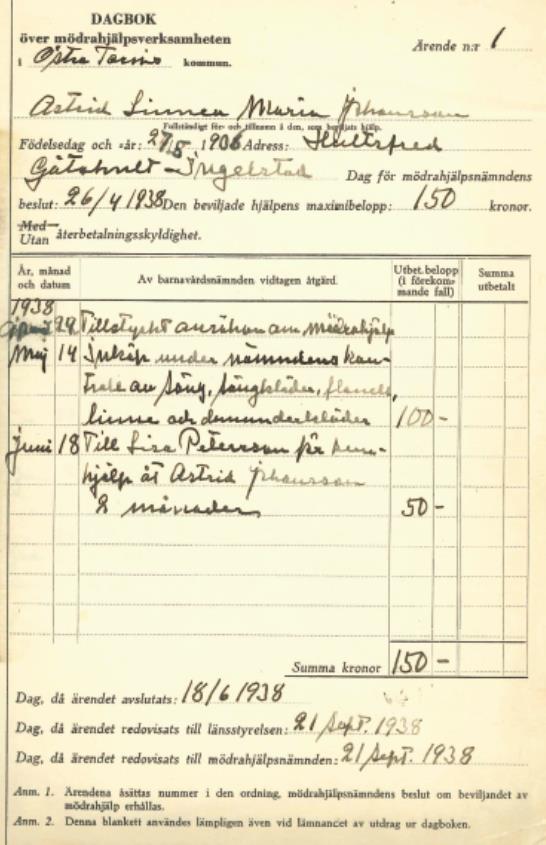 DAGBOK
över mödrahjälpsverksamheten
i Östra Torsås kommun.
Ärende n:r 1
Astrid Linnea Maria Johansson
Fullständigt för- och tillnamn å den, som beviljats hjälp.
Födelsedag och -år: 27/5 1906 Adress: Hultsfred
Ingelstad Dag för mödrahjälpsnämndens
beslut: 26/4 1938 Den beviljade hjälpens maximibelopp: 150 kronor.
Med
Utan återbetalningsskyldighet.
År, månad och datum
Av barnavårdsnämnden vidtagen åtgärd.
Utbet. belopp (i förekommande fall)
Summa utbetalt
1938
April 29 Tillstyrkt ansökan om mödrahjälp
Maj 14 Inköp under nämndens kon-
troll av säng, sängkläder, flanell,
linne och damunderkläder 100 -
Juni 18 Till Lisa Petersson för hem-
hjälp åt Astrid Johansson
2 månader 50 -
Summa kronor 150 -
Dag, då ärendet avslutats: 18/6 1938
Dag, då ärendet redovisats till länsstyrelsen: 21 Sept. 1938
Dag, då ärendet redovisats till mödrahjälpsnämnden: 21 Sept. 1938
Anm. 1. Ärendena åsättas nummer i den ordning, mödrahjälpsnämndens beslut om beviljandet av
mödrahjälp erhållas.
Anm. 2. Denna blankett användes lämpligen även vid lämnandet av utdrag ur dagboken.